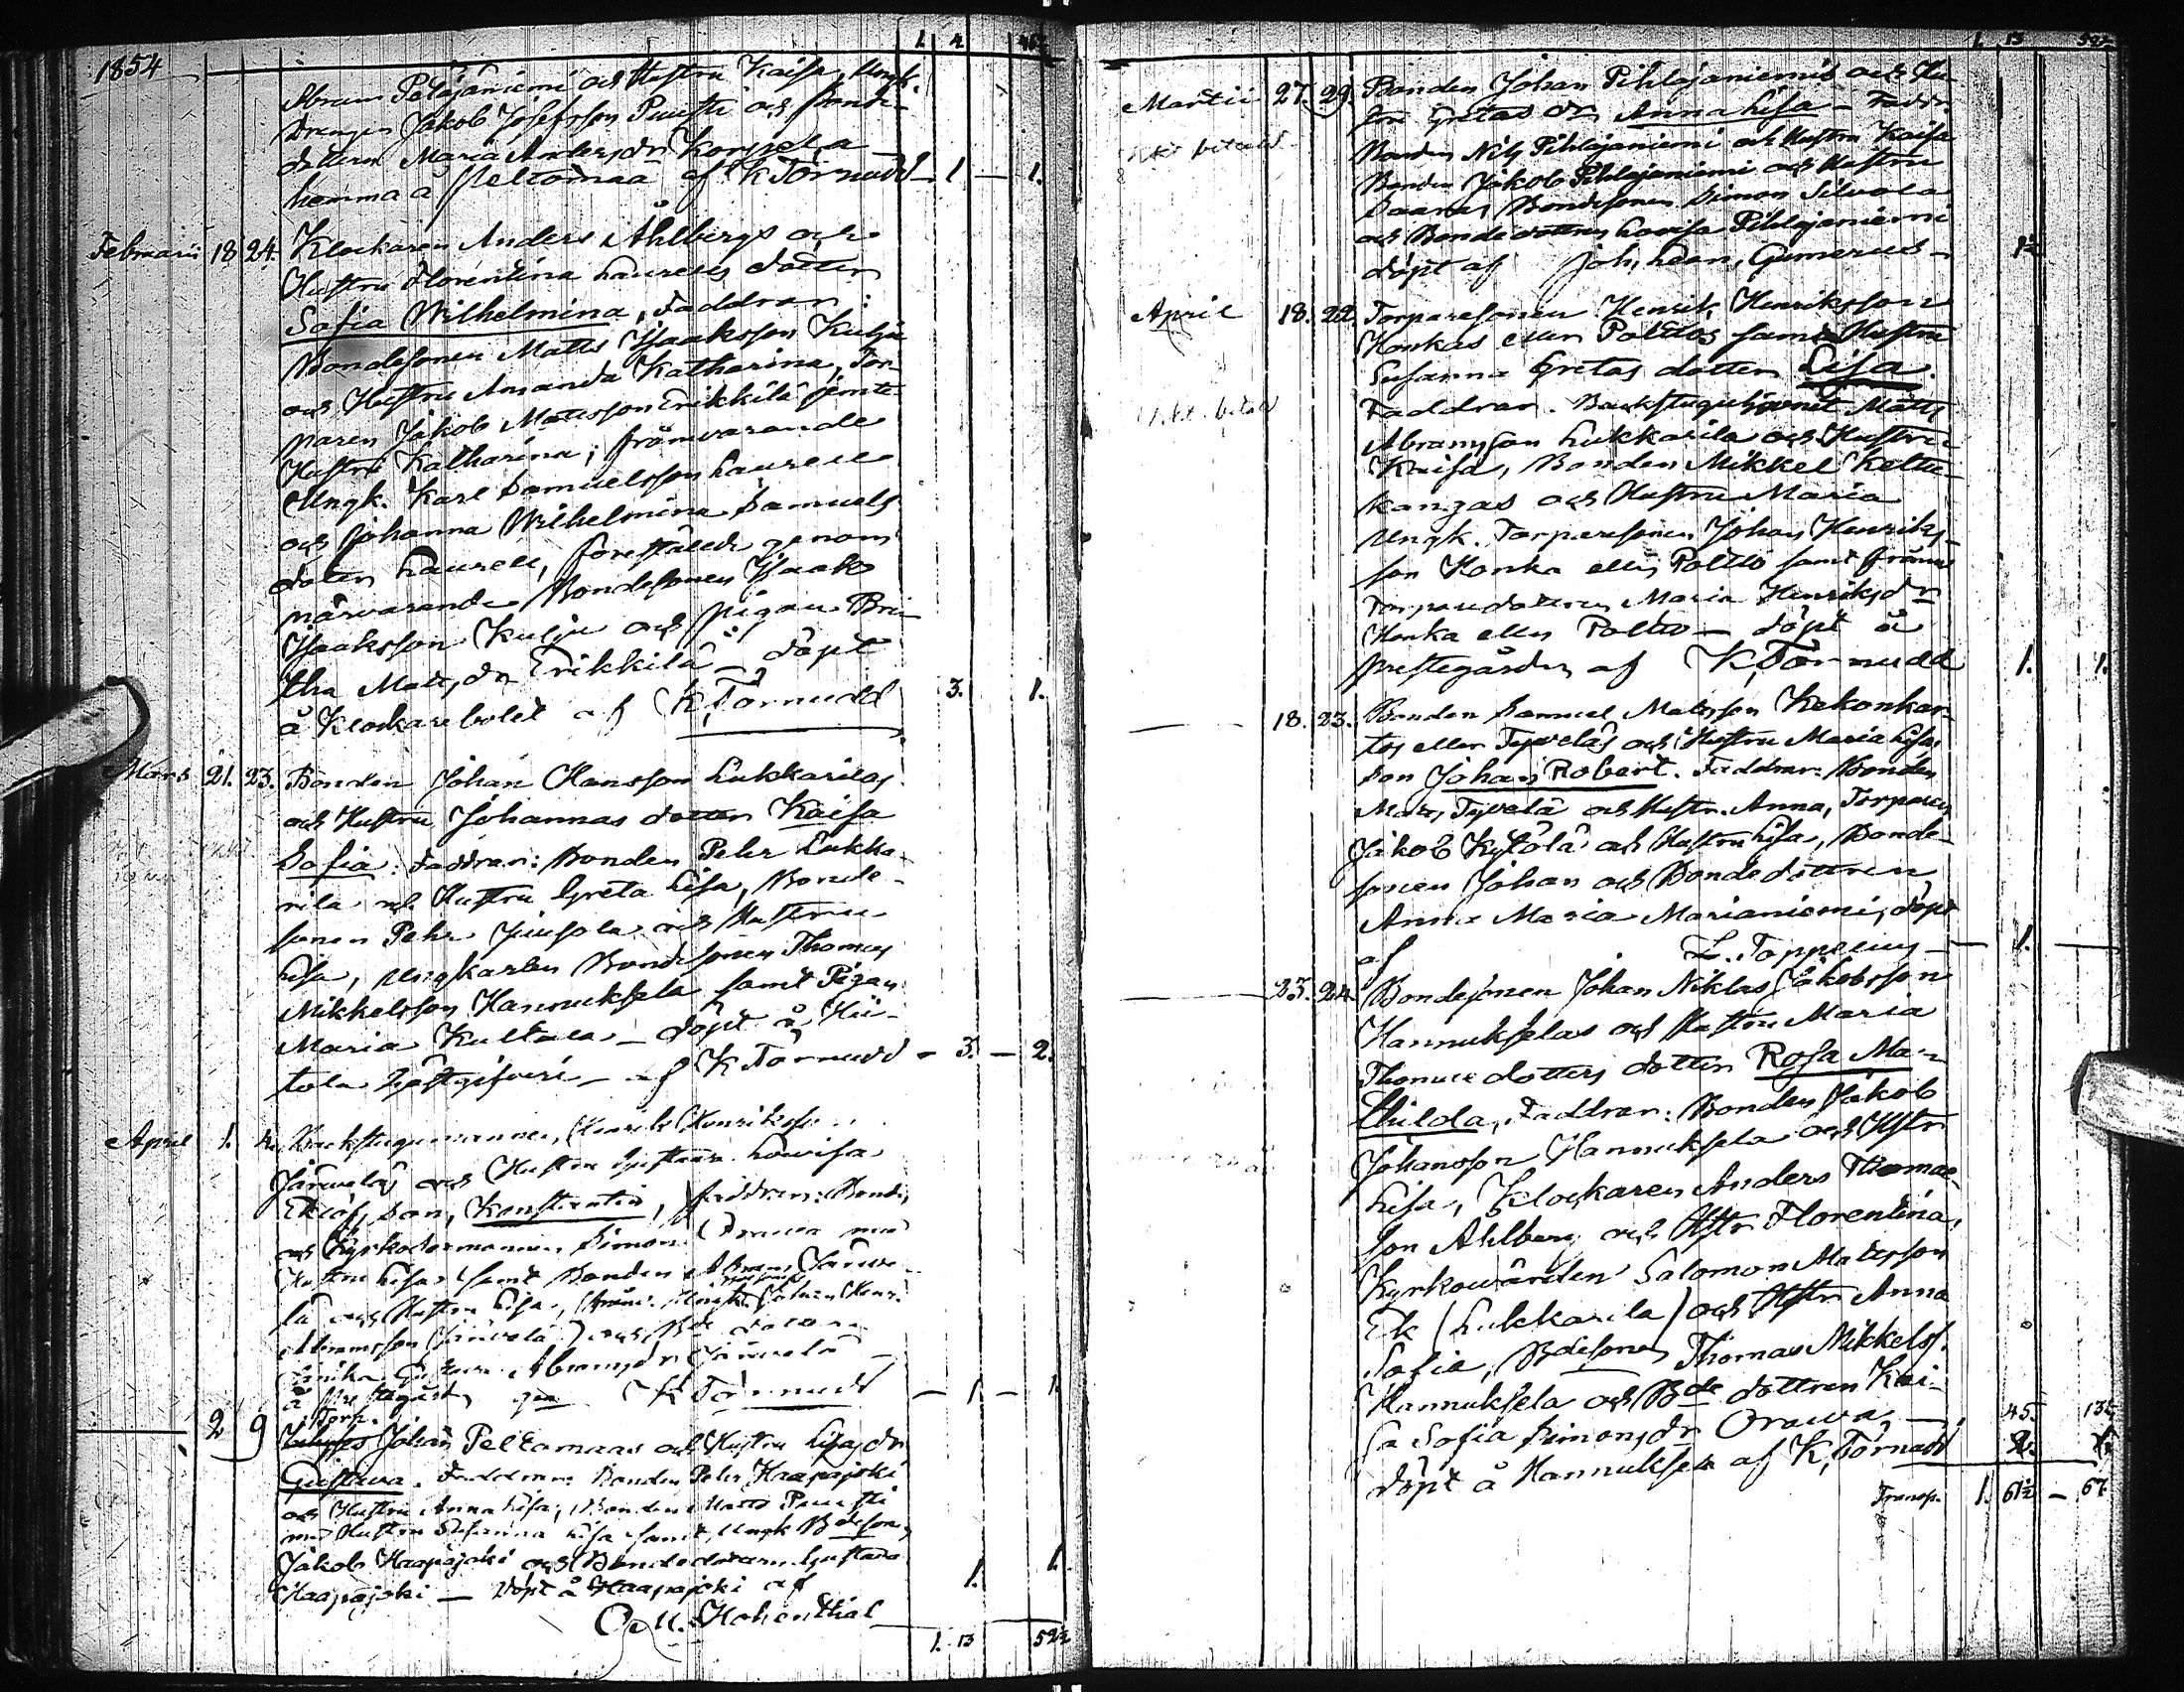 1854
1. 4. 46½
Abram Pelajäniemi och Hustru Kaisa, Ungk.
Drengen Jakob Josefsson Puusti och Bonde
dottern Maria Andersdr Korppela
hemma å Peltomaa af K Törnudd 1 — 1.
Februarii 18 24. Klockaren Anders Åhlbergs och
Hustru Florentina Laurells dotter
Sofia Wilhelmina, Faddrar:
Bondesonen Matts Isaaksson Kulju
och Hustru Amanda Katharina, Tor-
paren Jakob Matsson Erikkilä jemte
Hustru Katharina; frånvarande
Ungk. Karl Samuelsson Laurell
och Johanna Wilhelmina Samuels
doter Laurell, föreställde genom
närvarande Bondesonen Isaak
Isaaksson Kulju och pigan Bri-
tha Matsdr Erikkilä — döpt
å Klockarebolet af K, Törnudd 3. 1.
Mars 21. 23. Bonden Johan Hansson Lukkarilas
och Hustru Johannas dotter Kaisa
Sofia. Faddrar: Bonden Pehr Lukka-
rila och Hustru Greta Lisa, Bonde-
sonen Pehr Juusola och Hustru
Lisa, Ungkarlen Bondesonen Thomas
Mikkelsson Hannuksela samt Pigan
Maria Kultala — döpt å Hii-
tola Gästgifveri — af K Törnudd — 3. — 2.
April 1. 2. Backstugumannen, Henrik Henriksson
Järveläs och Hustru Gustava Lovisa
Eklöfs son, Konstantin, faddrar: Bonden
och Kyrkodormannen Simon Orawa med
Hustru Lisa samt Bonden Abram Järve-
lä och Hustru Lisa,
Abramsson Järvelä och Bde dotern
Abramsdr Järvelä
å Prestegården K Törnudd — 1 — 1
2 9 Torp. Johan Peltomaas och Hustru Lisas dr
Gustava. Faddrar: Bonden Pehr Haapajoki
och Hustru Anna Lisa, Bonden Matts Puusti
med Hustru Susanna Lisa samt, Ungk Bdesonen
Jakob Haapajoki och Bondedottern Gustava
Haapajoki — Döpt å Haapajoki af 1. 1.
Hohenthal
1. 13 59½
1. 13 59½
Martii 27. 29. Bonden Johan Pihlajaniemis och Hu-
stru Gretas dr Anna Lisa — Faddr:
Bonden Nils Pihlajaniemi och Hustru Kaisa
Bonden Jakob Pihlajaniemi och Hustru
Saara, Bondesonen Simon Silvola
och Bondedottren Lovisa Pihlajaniemi
döpt af Joh, Lean, Gumerus — 1½
April 18. 22. Torparesonen Henrik Henriksson
Honkas eller Poltios samt Hustru
Susanna Gretas dotter Lisa.
Faddrar. Backstuguhjonet Matts
Abramsson Lukkarila och Hustru
Kaisa, Bonden Mikkel Keltu-
kangas och Hustru Maria
Ungk. Torparesonen Johan Henriks-
son Honka eller Poltto samt
Torparedottren Maria Henriksdr
Honka eller Poltto — döpt å
prestegården af K, Törnudd 1. 1.
18. 23. Bonden Samuel Matsson Kekonkar-
tos eller Typeläs och Hustru Maria Lisas
Son Johan Robert. Faddrar: Bonden
Matts Typelä och Hustr. Anna, Torparen
Jakob Kytölä och Hustru Lisa, Bonde-
sonen Johan och Bondedottren
Anna Maria Marianiemi, döpt
af L. Toppelius — 1. —
23. 24. Bondesonen Johan Niklas Jakobsson
Hannukselas och Hustru Maria
Thomae dotters dotter Rosa Ma-
thilda, Faddrar: Bonden Jakob
Johansson Hannuksela och Hstr
Lisa, Klockaren Anders Thomae-
son Ahlberg och Hstr Florentina,
Kyrkowärden Salomon Matsson
Ek (Lukkarila) och Hstr Anna
Sofia, Bdesonen Thomas Mikkelss.
Hannuksela och Bde dottren Kai-
sa Sofia Simonsdr Orawa, — 45. 13½
döpt å Hannuksela af K, Törnudd 2.
Transp. 1. 61½ — 67.